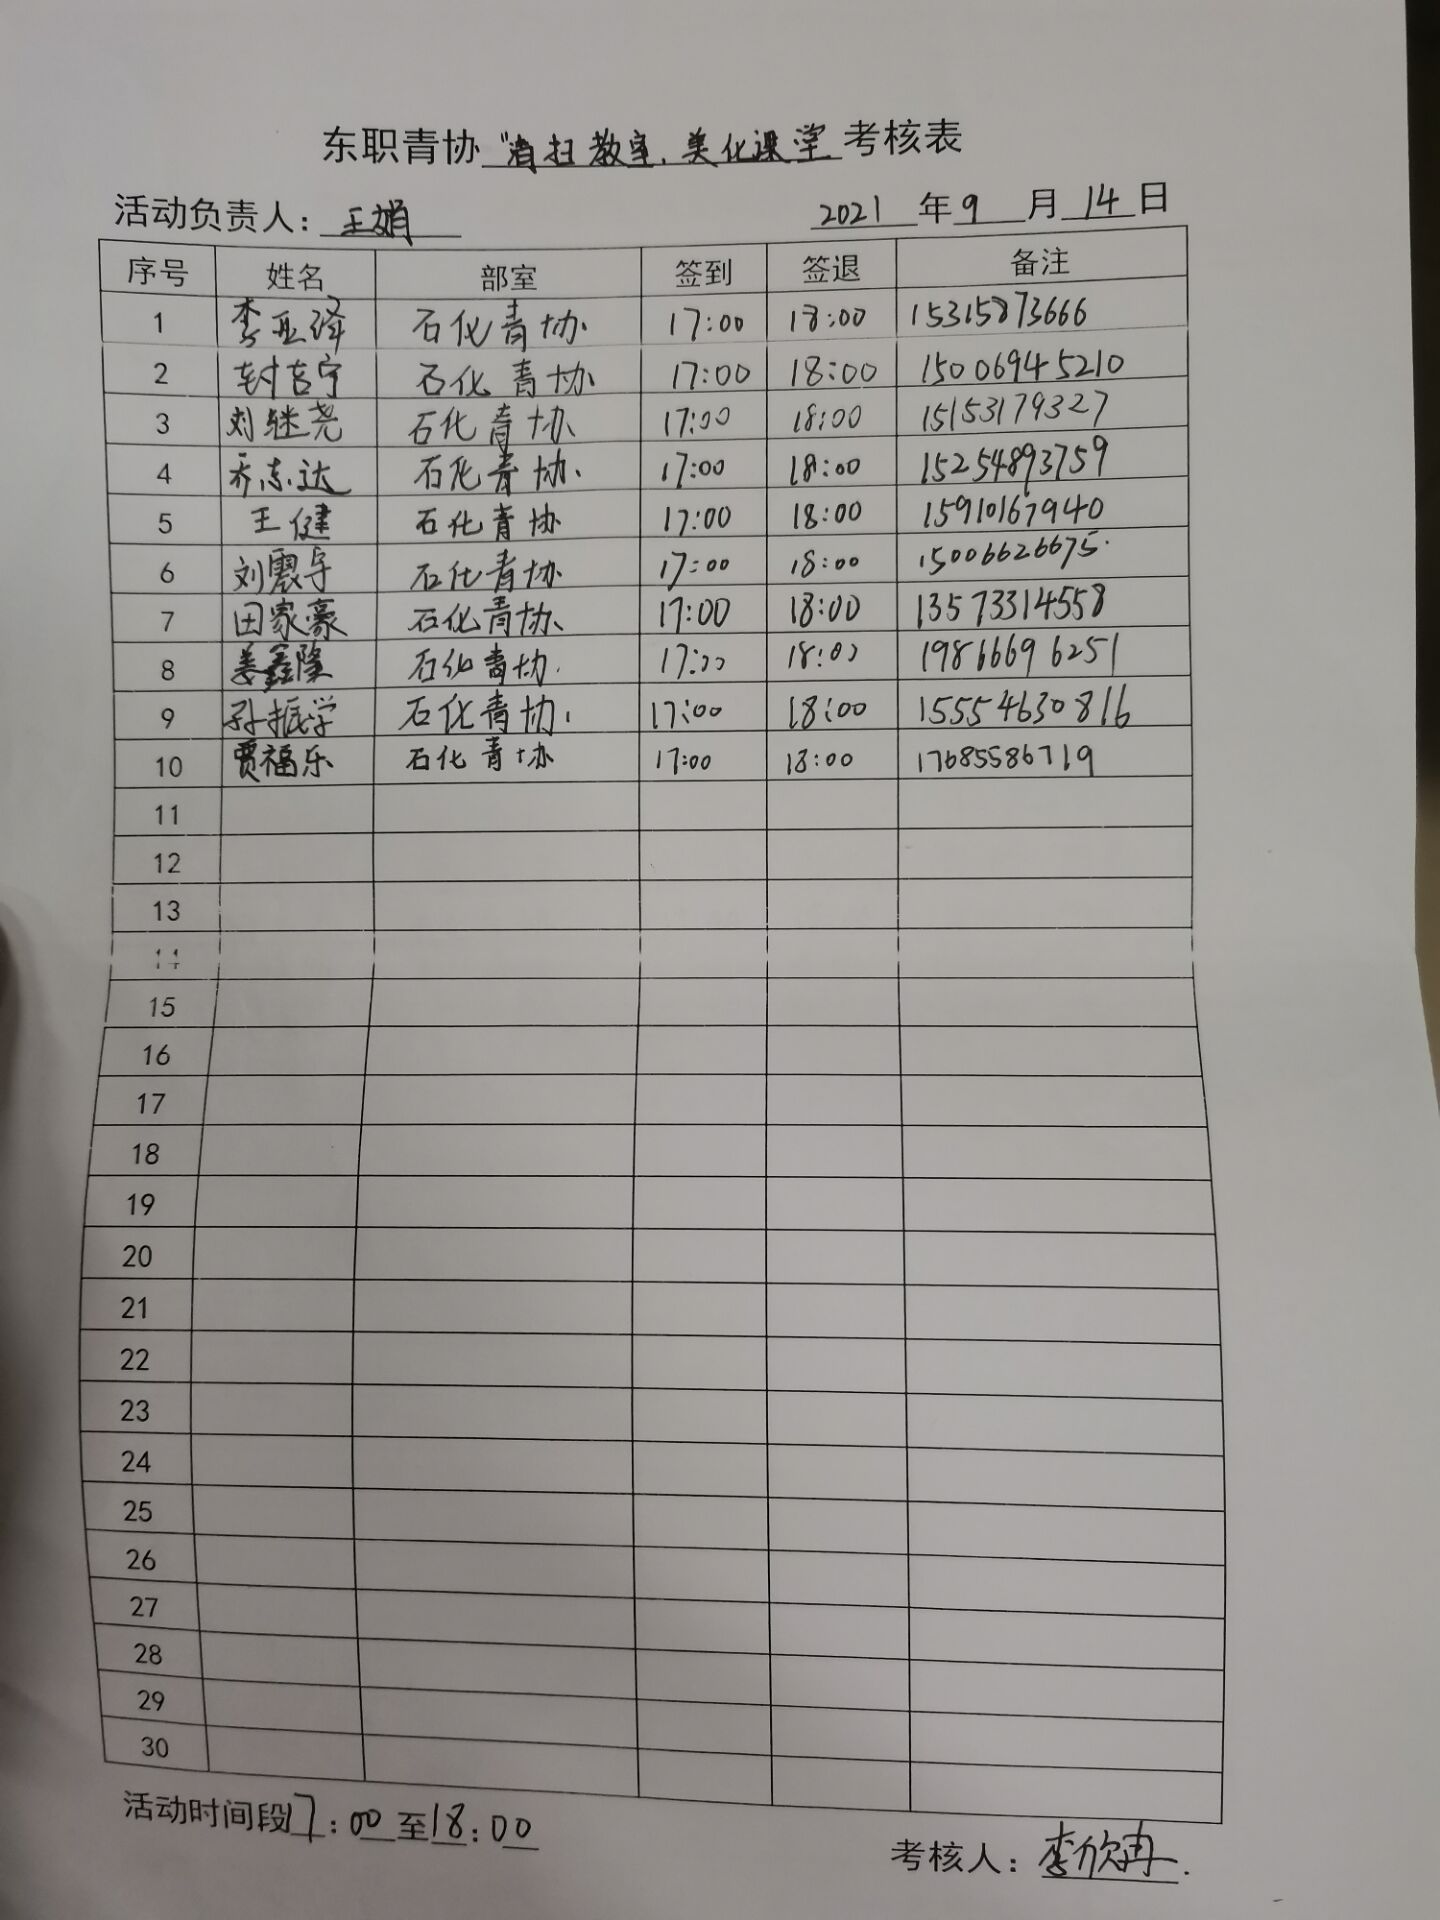 东职青协"清扫教室、美化课堂考核表
活动负责人：王娟 2021年9月14日
序号 姓名 部室 签到 签退 备注
1 李亚泽 石化青协 17:00 18:00 15315873666
2 封吉宁 石化青协 17:00 18:00 15006945210
3 刘继尧 石化青协 17:00 18:00 15153179327
4 乔志达 石化青协 17:00 18:00 15254893759
5 王健 石化青协 17:00 18:00 15910167940
6 刘震宇 石化青协 17:00 18:00 15006626675
7 田家豪 石化青协 17:00 18:00 13573314558
8 姜鑫隆 石化青协 17:00 18:00 19866696251
9 孙振学 石化青协 17:00 18:00 15554630816
10 贾福乐 石化青协 17:00 18:00 17685586719
11
12
13
14
15
16
17
18
19
20
21
22
23
24
25
26
27
28
29
30
活动时间段17:00至18:00
考核人：李欣冉.